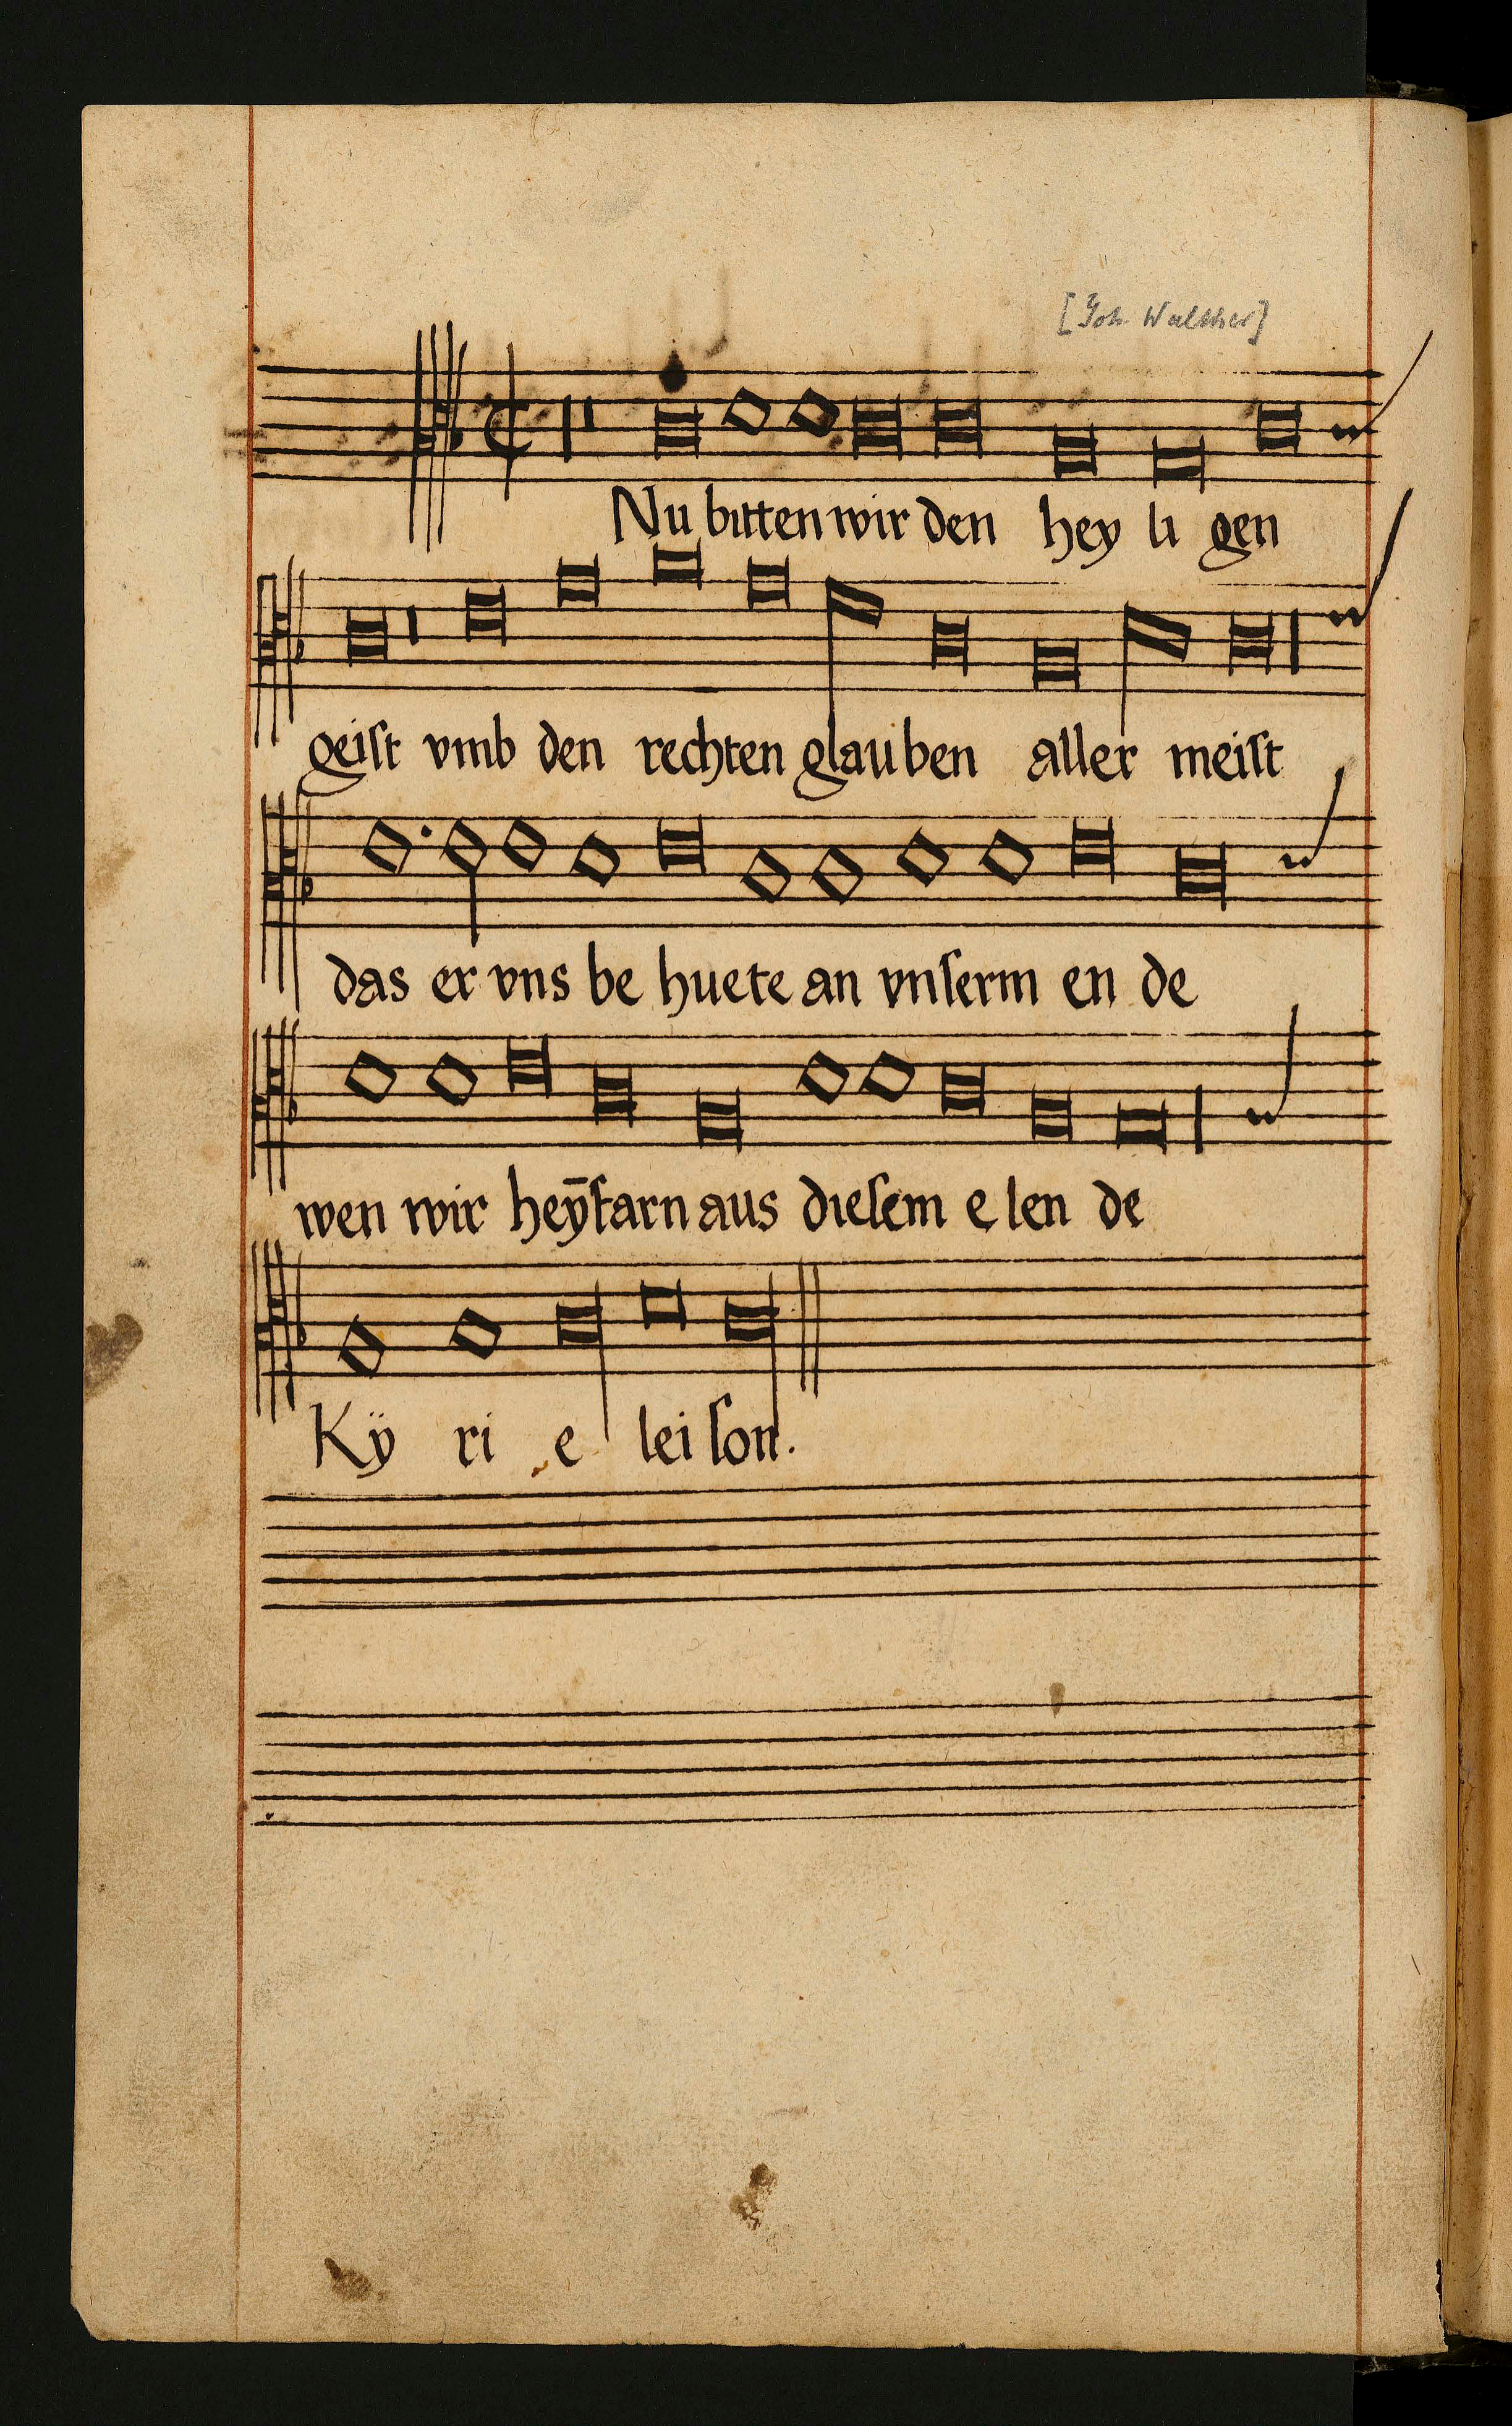 [Joh. Walther]
Nu bitten wir den hey li gen
geiſt vmb den rechten glauben aller meiſt
das er vns be huete an vnſerm en de
wen wir heӯfarn aus dieſem e len de
Kÿ ri e lei ſon.